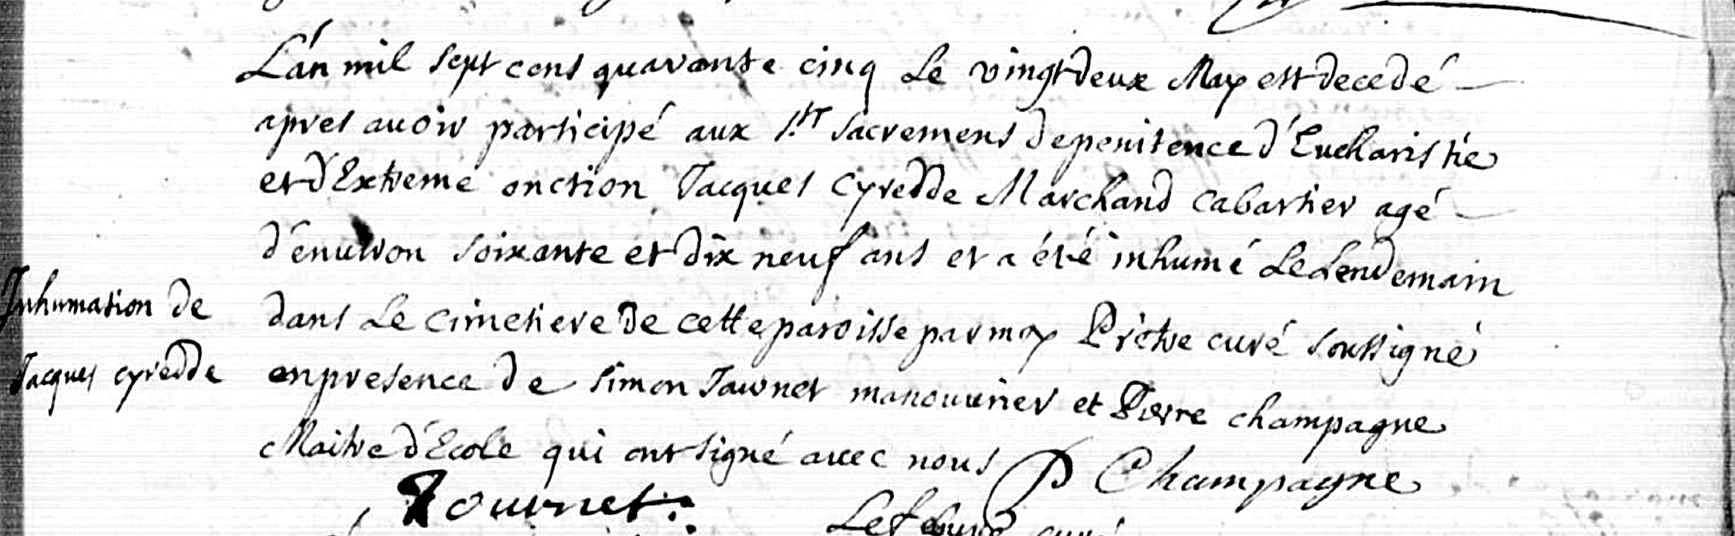 L'an mil sept cens quarante cinq Le vingt deux May est decedé
apres avoir participé aux Sts sacremens de penitence d'Eucharistie
et d'Extreme onction Jacques Cyredde Marchand cabartier agé
d'environ soixante et dix neuf ans et a été inhumé Le Lendemain
Inhumation de
Jacques cyredde
dans Le cimetiere de cette paroisse par moy Prêtre curé soussigné
en presence de Simon manouvrier et Pierre champagne
Maitre d'Ecole qui ont signé avec nous P Champagne
Lefebure curé